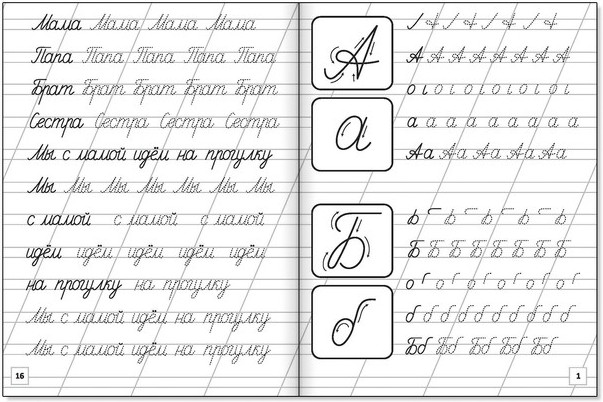 Мама Мама Мама Мама
Папа Папа Папа Папа Папа
Брат Брат Брат Брат Брат
Сестра Сестра Сестра Сестра
Мы с мамой идём на прогулку
Мы Мы Мы Мы Мы Мы Мы
с мамой с мамой с мамой
идём идём идём идём идём
на прогулку на прогулку
Мы с мамой идём на прогулку
Мы с мамой идём на прогулку
16
А
А А А А А А А А А
а
а а а а а а а а а
Аа Аа Аа Аа Аа
Б
Б Б Б Б Б Б Б Б Б
б
б б б б б б б б б б
Бб Бб Бб Бб Бб
1